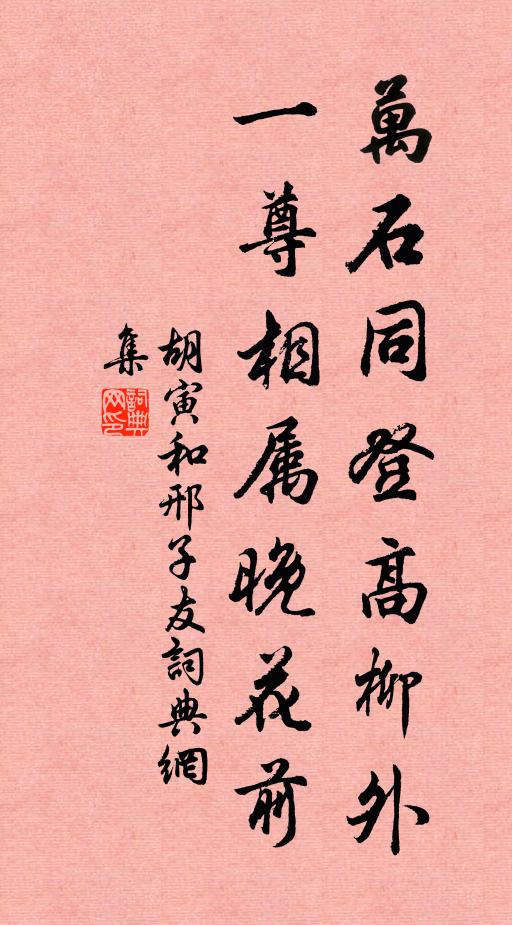 萬石同登高柳外
一尊相属晚花前
胡寅和邢子友詞典網
集
詞典网印